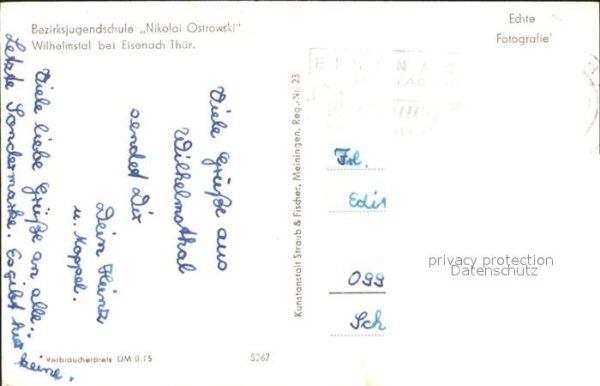 Bezirksjugendschule „Nikolai Ostrowski"
Wilhelmstal bei Eisenach/Thür.
Echte
Fotografie
Viele Grüße aus
Wilhelmsthal
sendet Dir
Dein Heinz
u. Koppel.
Viele liebe Grüße an alle.
Letzte Sondermarke. Es gibt hier keine.
Kunstanstalt Straub & Fischer, Meiningen, Reg.-Nr. 23
EISENAC
Frl.
Edit
099
Sch
privacy protection
Datenschutz
Verbraucherpreis DM 0.15
5267